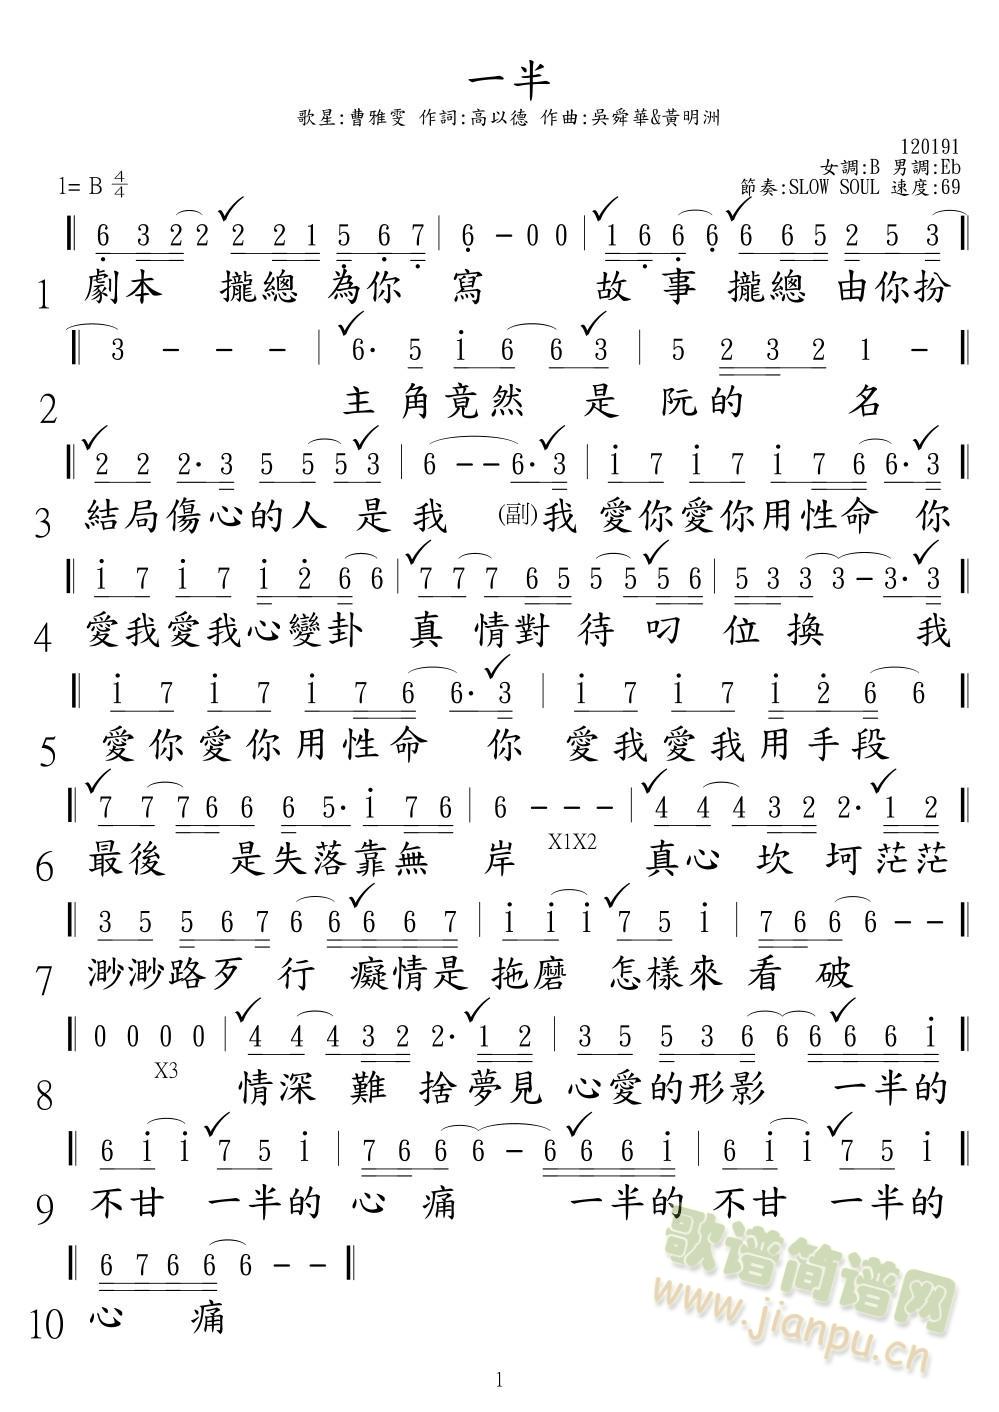 一半
歌星:曹雅雯 作詞:高以德 作曲:吳舜華&黃明洲
120191
女調:B 男調:Eb
1= B 4/4
節奏:SLOW SOUL 速度:69
6 3 2 2 2 2 1 5 6 7 | 6 - 0 0 | 1 6 6 6 6 6 5 2 5 3
1 劇本 攏總 為你 寫 故 事 攏總 由你扮
3 - - - | 6· 5 i 6 6 3 | 5 2 3 2 1 -
2 主角竟然 是 阮的 名
2 2 2· 3 5 5 5 3 | 6 - - 6· 3 | i 7 i 7 i 7 6 6· 3
3 結局傷心的人 是 我 (副)我 愛你愛你用性命 你
i 7 i 7 i 2 6 6 | 7 7 7 6 5 5 5 5 6 | 5 3 3 3 - 3· 3
4 愛我愛我心變卦 真 情對 待 叼 位 換 我
i 7 i 7 i 7 6 6· 3 | i 7 i 7 i 2 6 6
5 愛你愛你用性命 你 愛我愛我用手段
7 7 7 6 6 6 5· i 7 6 | 6 - - - | 4 4 4 3 2 2· 1 2
6 最後 是失落靠無 岸 X1X2 真心 坎 坷茫茫
3 5 5 6 7 6 6 6 6 7 | i i i 7 5 i | 7 6 6 6 - -
7 渺渺路歹 行 癡情是 拖磨 怎樣來 看 破
0 0 0 0 | 4 4 4 3 2 2· 1 2 | 3 5 5 3 6 6 6 6 6 i
8 X3 情深 難 捨夢見 心愛的形影 一半的
6 i i 7 5 i | 7 6 6 6 - 6 6 6 i | 6 i i 7 5 i
9 不甘 一半的 心 痛 一半的 不甘 一半的
6 7 6 6 6 - -
10 心 痛
歌谱简谱网
www.jianpu.cn
1